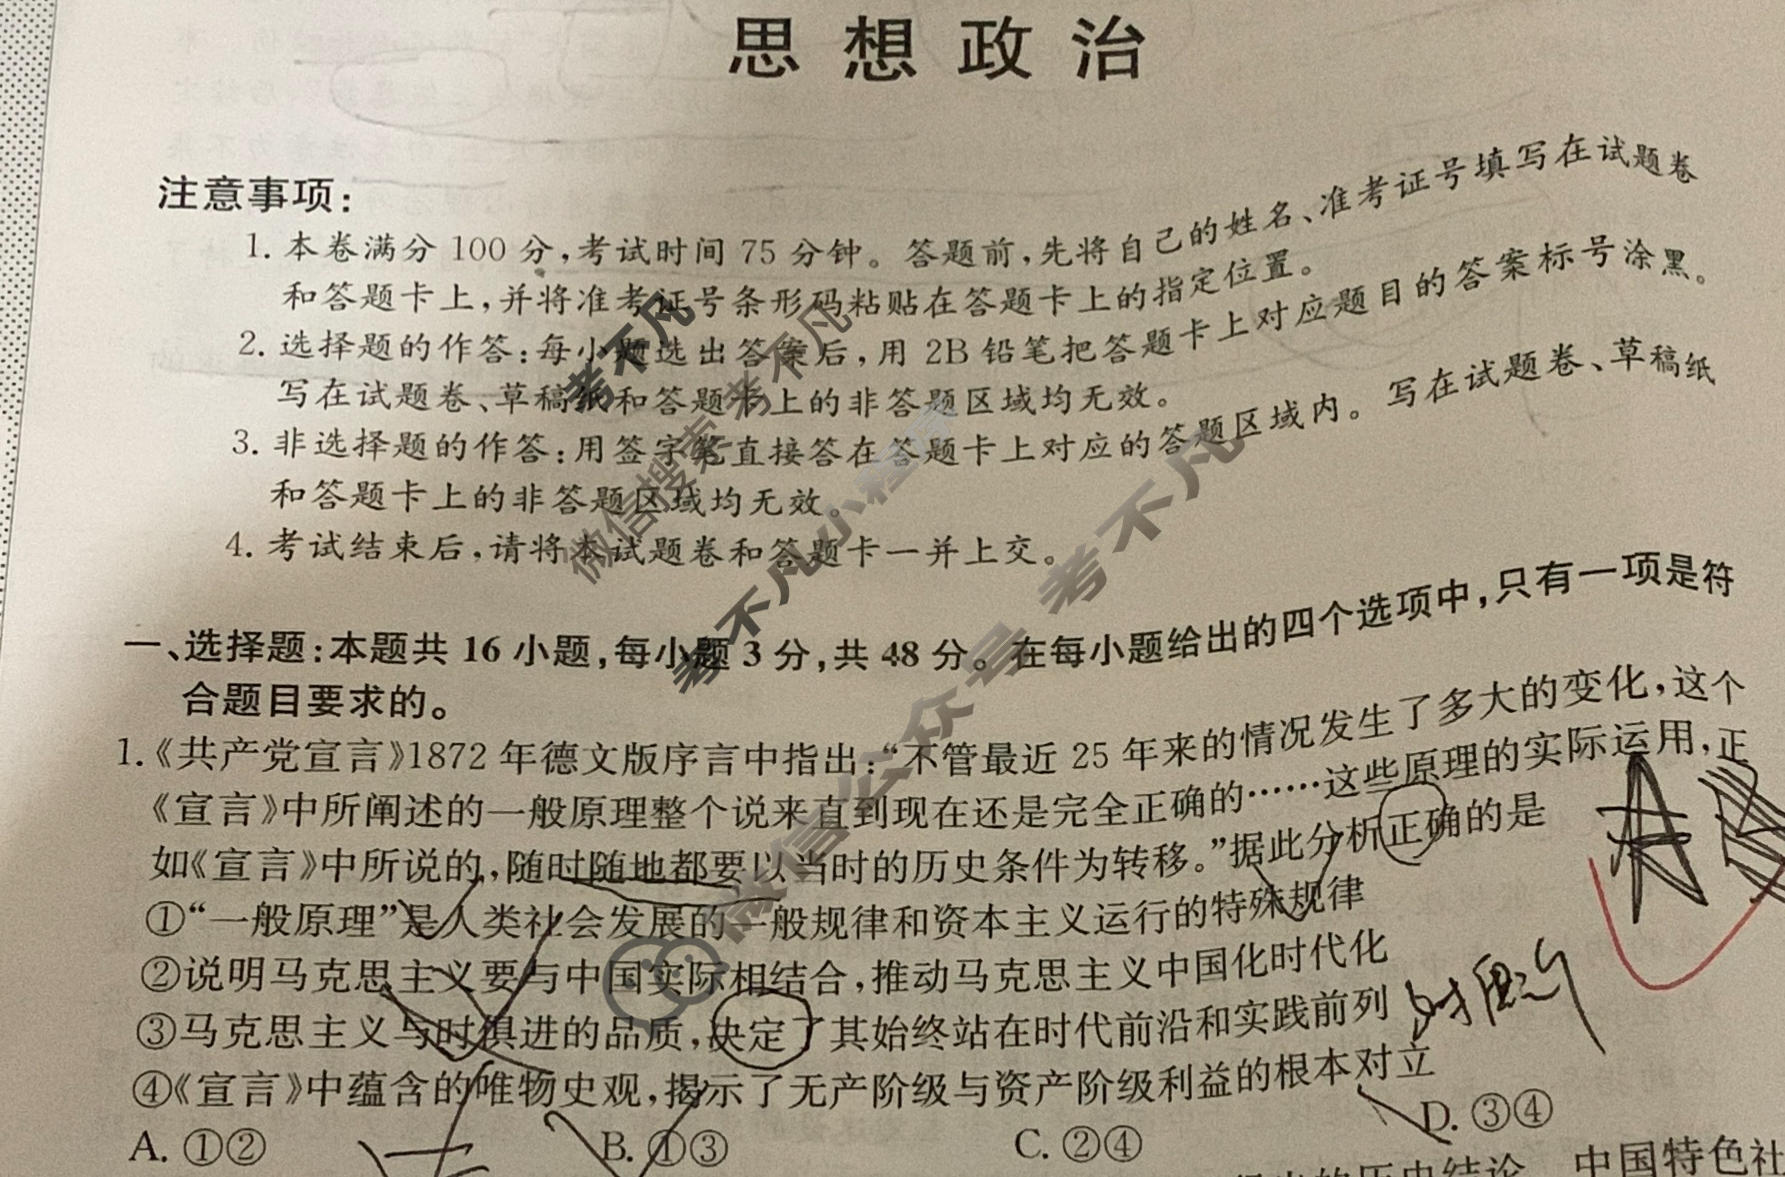 思想政治
注意事项:
1. 本卷满分 100 分,考试时间 75 分钟。答题前,先将自己的姓名、准考证号填写在试题卷
和答题卡上,并将准考证号条形码粘贴在答题卡上的指定位置。
2. 选择题的作答:每小题选出答案后,用 2B 铅笔把答题卡上对应题目的答案标号涂黑。
写在试题卷、草稿纸和答题卡上的非答题区域均无效。
3. 非选择题的作答:用签字笔直接答在答题卡上对应的答题区域内。写在试题卷、草稿纸
和答题卡上的非答题区域均无效。
4. 考试结束后,请将本试题卷和答题卡一并上交。
一、选择题:本题共 16 小题,每小题 3 分,共 48 分。在每小题给出的四个选项中,只有一项是符
合题目要求的。
1.《共产党宣言》1872 年德文版序言中指出:“不管最近 25 年来的情况发生了多大的变化,这个
《宣言》中所阐述的一般原理整个说来直到现在还是完全正确的……这些原理的实际运用,正
如《宣言》中所说的,随时随地都要以当时的历史条件为转移。”据此分析正确的是
①“一般原理”是人类社会发展的一般规律和资本主义运行的特殊规律
②说明马克思主义要与中国实际相结合,推动马克思主义中国化时代化
③马克思主义与时俱进的品质,决定了其始终站在时代前沿和实践前列
④《宣言》中蕴含的唯物史观,揭示了无产阶级与资产阶级利益的根本对立
A. ①② B. ①③ C. ②④ D. ③④
的历史结论 中国特色社
考不凡
微信搜索考不凡
考不凡小程序
微信公众号 考不凡